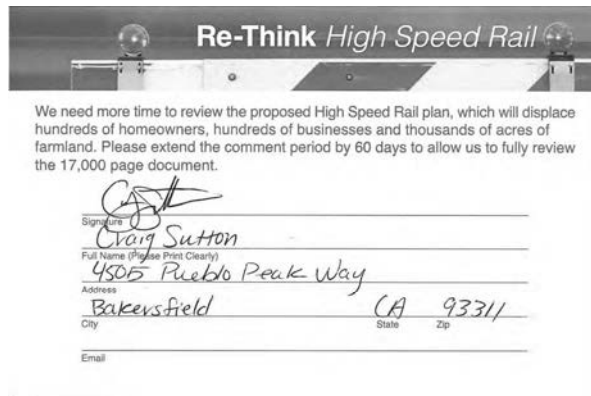 Re-Think High Speed Rail
We need more time to review the proposed High Speed Rail plan, which will displace
hundreds of homeowners, hundreds of businesses and thousands of acres of
farmland. Please extend the comment period by 60 days to allow us to fully review
the 17,000 page document.
Signature
Craig Sutton
Full Name (Please Print Clearly)
4505 Pueblo Peak Way
Address
Bakersfield CA 93311
City State Zip
Email